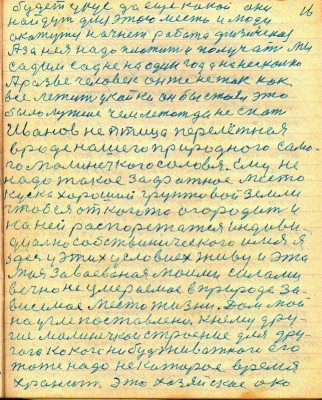 будет укус да еще какой они
найдут для этого месть и люди
окотуют начнет работа физическая
А за нея надо плотит и получат мы
садим сад не на один год а на несколко
А разве человек он же не так как
все летит укатки он бы стоял это
было лутше чем летат да не стот
Иванов не птица перелётная
вроде нашего природного само-
го малинечкого соловя. Ему не
надо такое Зафратное место
куска хороший грунтовой земли
чтобся от когото огородит и
на ней распоретатся индиви-
диално собствиническаго имя Я
здес у этих условиех живу и эта
мая Заваёваная моими силами
вечно не умераемое в природе За-
висемае место жизни. Дом мой
на угле поставлено, к нему дру-
гие малинкои строение для дру-
гого кокого нибуд животнаго его
тоже надо некоторое время
хранит. Это хозяйское око